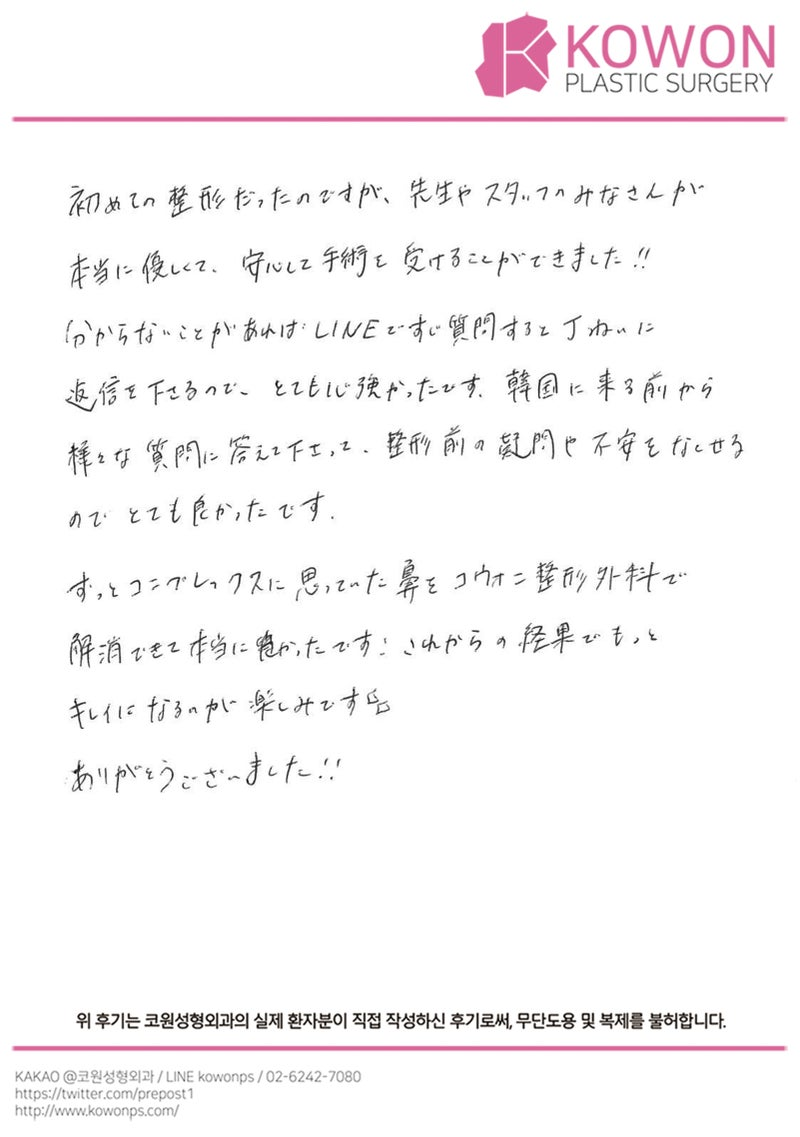 KOWON
PLASTIC SURGERY
初めての整形だったのですが、先生やスタッフのみなさんが
本当に優しくて、安心して手術を受けることができました!!
分からないことがあればLINEですぐ質問すると丁ねいに
返信を下さるので、とても心強かったです。韓国に来る前から
様々な質問に答えて下さって、整形前の疑問や不安をなくせる
のでとても良かったです.
ずっとコンプレックスに思っていた鼻をコウォン整形外科で
解消できて本当に良かったです! これからの経果でもっと
キレイになるのが楽しみです
ありがとうございました!!
위 후기는 코원성형외과의 실제 환자분이 직접 작성하신 후기로써, 무단도용 및 복제를 불허합니다.
KAKAO @코원성형외과 / LINE kowonps / 02-6242-7080
https://twitter.com/prepost1
http://www.kowonps.com/